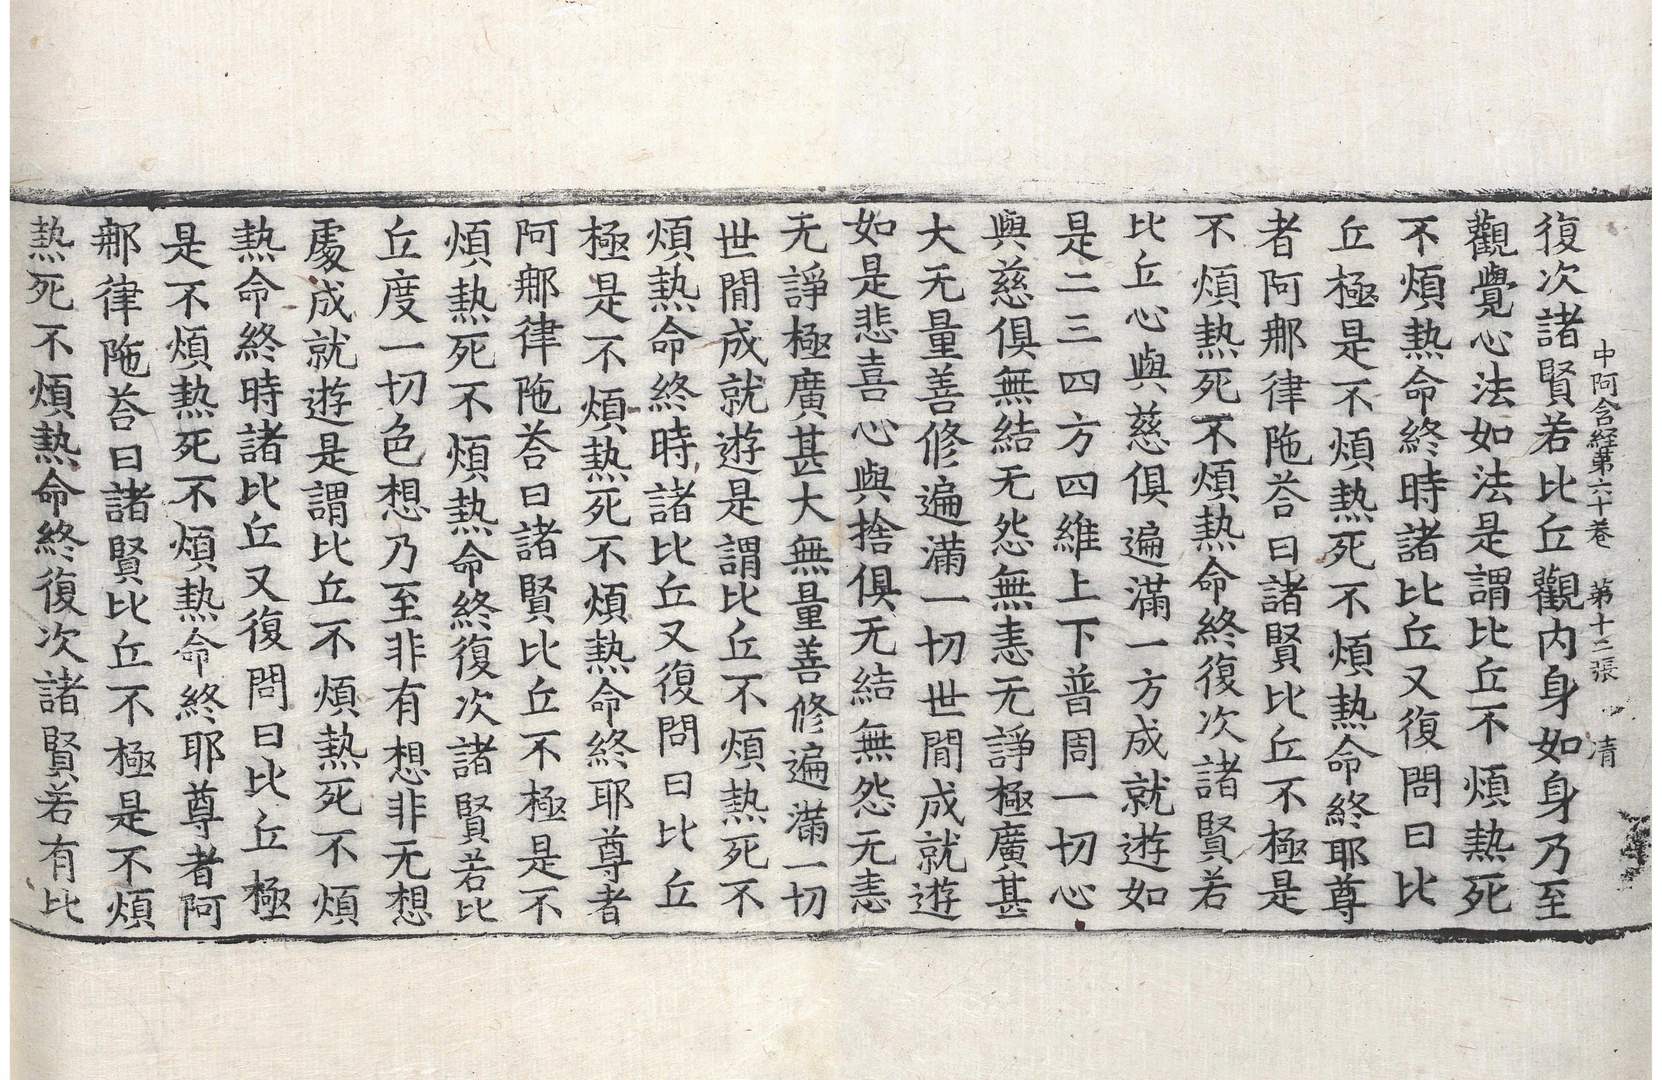 中阿含経第六十巻 第十三張 清
復次諸賢若比丘觀内身如身乃至
觀覺心法如法是謂比丘不煩熱死
不煩熱命終時諸比丘又復問曰比
丘極是不煩熱死不煩熱命終耶尊
者阿那律陁荅曰諸賢比丘不極是
不煩熱死不煩熱命終復次諸賢若
比丘心與慈俱遍滿一方成就遊如
是二三四方四維上下普周一切心
與慈俱無結无怨無恚无諍極廣甚
大无量善修遍滿一切世間成就遊
如是悲喜心與捨俱无結無怨无恚
无諍極廣甚大無量善修遍滿一切
世間成就遊是謂比丘不煩熱死不
煩熱命終時諸比丘又復問曰比丘
極是不煩熱死不煩熱命終耶尊者
阿那律陁荅曰諸賢比丘不極是不
煩熱死不煩熱命終復次諸賢若比
丘度一切色想乃至非有想非无想
處成就遊是謂比丘不煩熱死不煩
熱命終時諸比丘又復問曰比丘極
是不煩熱死不煩熱命終耶尊者阿
那律陁荅曰諸賢比丘不極是不煩
熱死不煩熱命終復次諸賢若有比